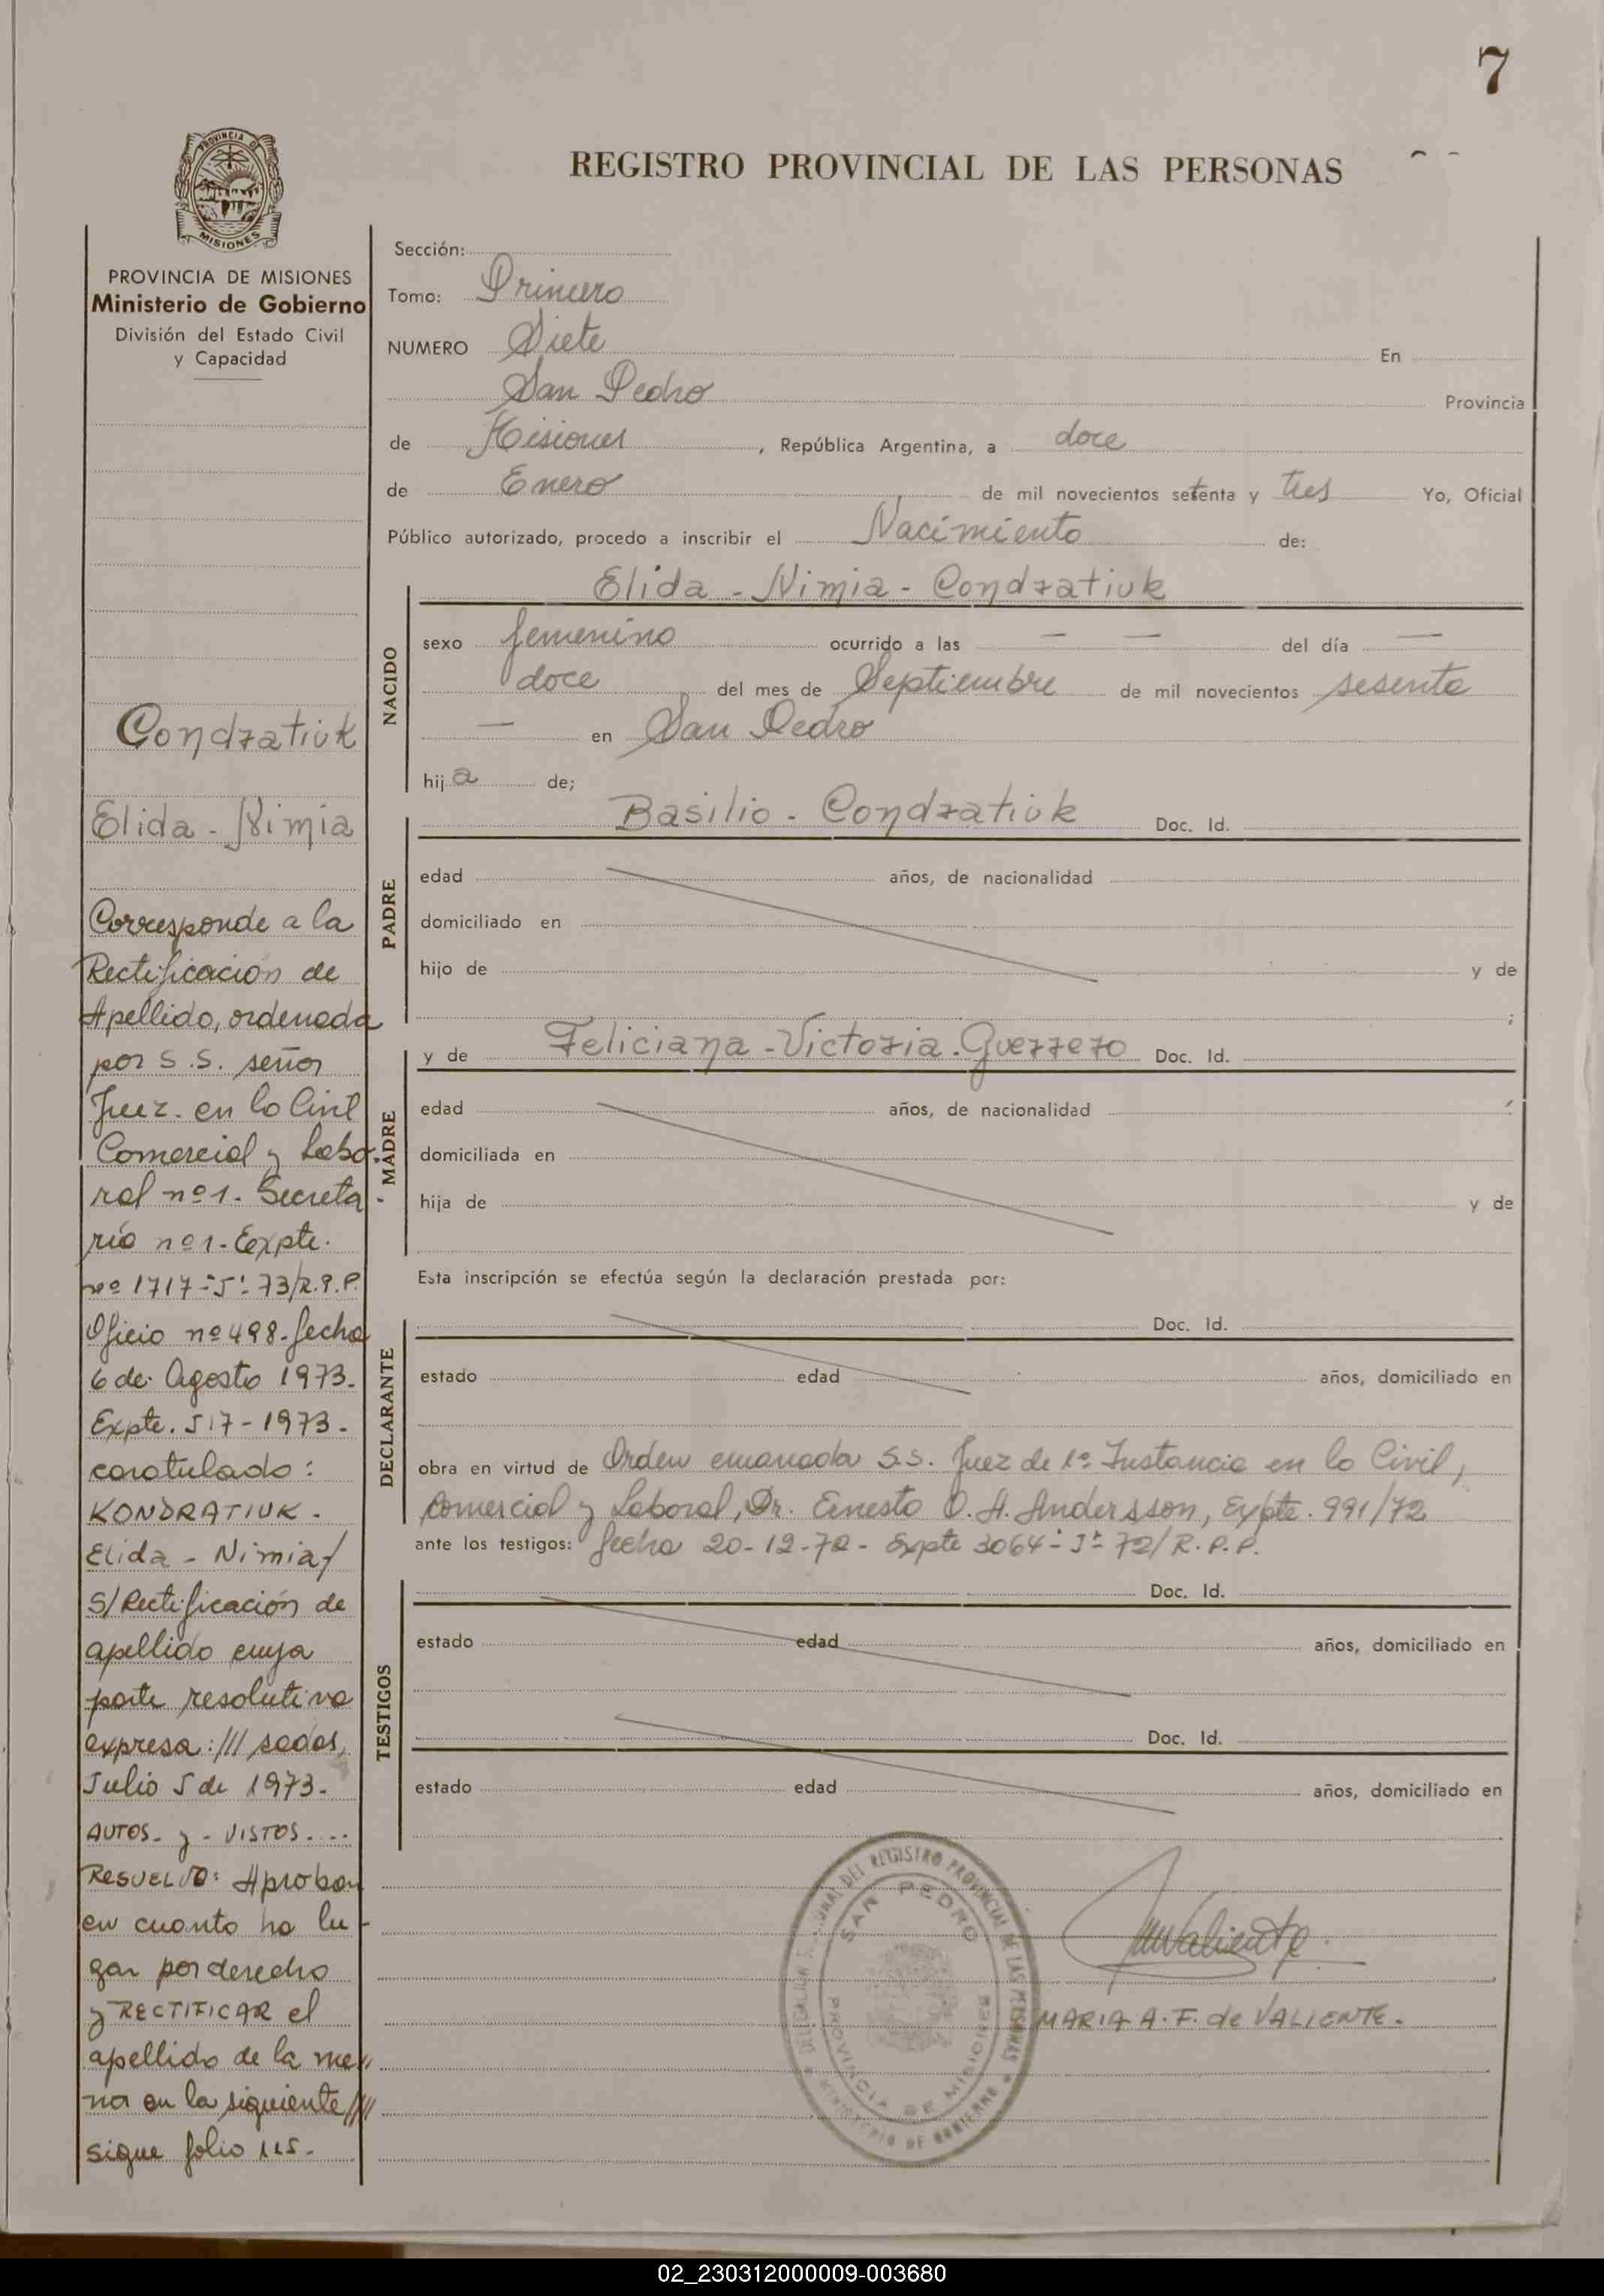 7
PROVINCIA DE
MISIONES
REGISTRO PROVINCIAL DE LAS PERSONAS
PROVINCIA DE MISIONES
Ministerio de Gobierno
División del Estado Civil
y Capacidad
Condratiuk
Elida - Nimia
Corresponde a la
Rectificación de
Apellido, ordenada
por S.S. señor
Juez. en lo Civil
Comercial y Labo-
ral nº1. Secreta-
rio nº1. Expte.
nº 1717-J-73/R.P.P.
Oficio nº498-fecha
6 de Agosto 1973.
Expte. 517-1973-
caratulado:
KONDRATIUK -
Elida - Nimia/
S/Rectificación de
apellido cuya
parte resolutiva
expresa:///sadas,
Julio 5 de 1973.
AUTOS - y - VISTOS....
RESUELVO: Aprobar
en cuanto ha lu-
gar por derecho
y RECTIFICAR el
apellido de la me//
nor en la siguiente////
sigue folio 115.
Sección:
Tomo: Primero
NUMERO Siete En
San Pedro Provincia
de Misiones, República Argentina, a doce
de Enero de mil novecientos setenta y tres Yo, Oficial
Público autorizado, procedo a inscribir el Nacimiento de:
NACIDO
Elida - Nimia - Condratiuk
sexo femenino ocurrido a las — — del día —
doce del mes de Septiembre de mil novecientos sesenta
— en San Pedro
hija de;
PADRE
Basilio - Condratiuk Doc. Id.
edad años, de nacionalidad
domiciliado en
hijo de y de
;
MADRE
y de Feliciana - Victoria - Guerrero Doc. Id.
edad años, de nacionalidad
domiciliada en
hija de y de
Esta inscripción se efectúa según la declaración prestada por:
DECLARANTE
Doc. Id.
estado edad años, domiciliado en
obra en virtud de Orden emanada S.S. Juez de 1ª Instancia en lo Civil,
Comercial y Laboral, Dr. Ernesto O.H. Andersson, Expte. 991/72
ante los testigos: fecha 20-12-72 - Expte 3064-J-72/R.P.P.
TESTIGOS
Doc. Id.
estado edad años, domiciliado en
Doc. Id.
estado edad años, domiciliado en
DEL REGISTRO PROVINCIAL DE LAS PERSONAS
SAN PEDRO
PROVINCIA DE MISIONES
MINISTERIO DE GOBIERNO
MARIA A. F. de VALIENTE.
02_230312000009-003680